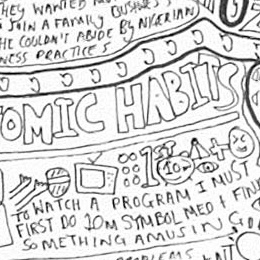 THEY WANTED ME
JOIN A FAMILY BUSINESS
HE COULDN'T ABIDE BY NIGERIAN
NESS PRACTICES
OMIC HABITS
1ST 10M +
TO WATCH A PROGRAM I MUST
FIRST DO 10M SYMBOL MED + FIND
SOMETHING AMUSING
PROBLEMS